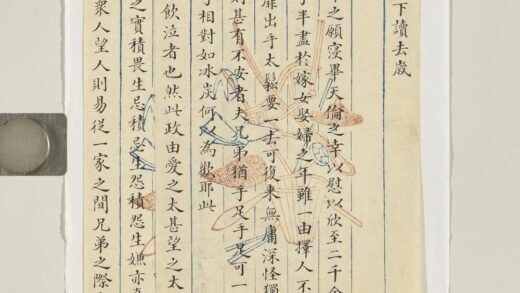 下讀去歲
之願寔畢天倫之幸以慰以欣至二千金
半盡於嫁女娶婦之年雖一由擇人不
出手太鬆要一去可復来無庸深怪獨
則甚有不安者夫兄弟猶手足手足可一
相對如冰炭何以為歡耶此
飲泣者也然此政由愛之太甚望之太
之實積畏生忌積忌生怨積怨生嫵亦
衆人望人則易從一家之間兄弟之際